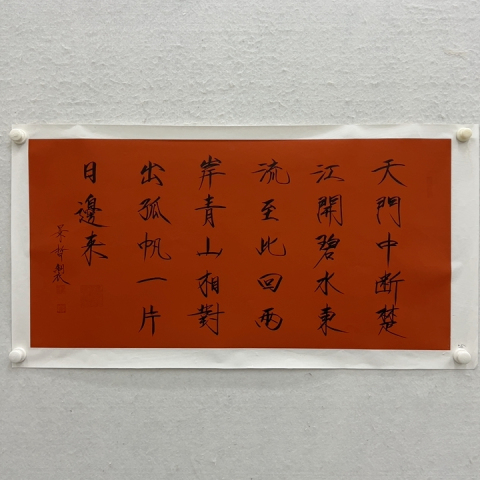 天門中断楚
江開碧水東
流至此回兩
岸青山相對
出孤帆一片
日邊来